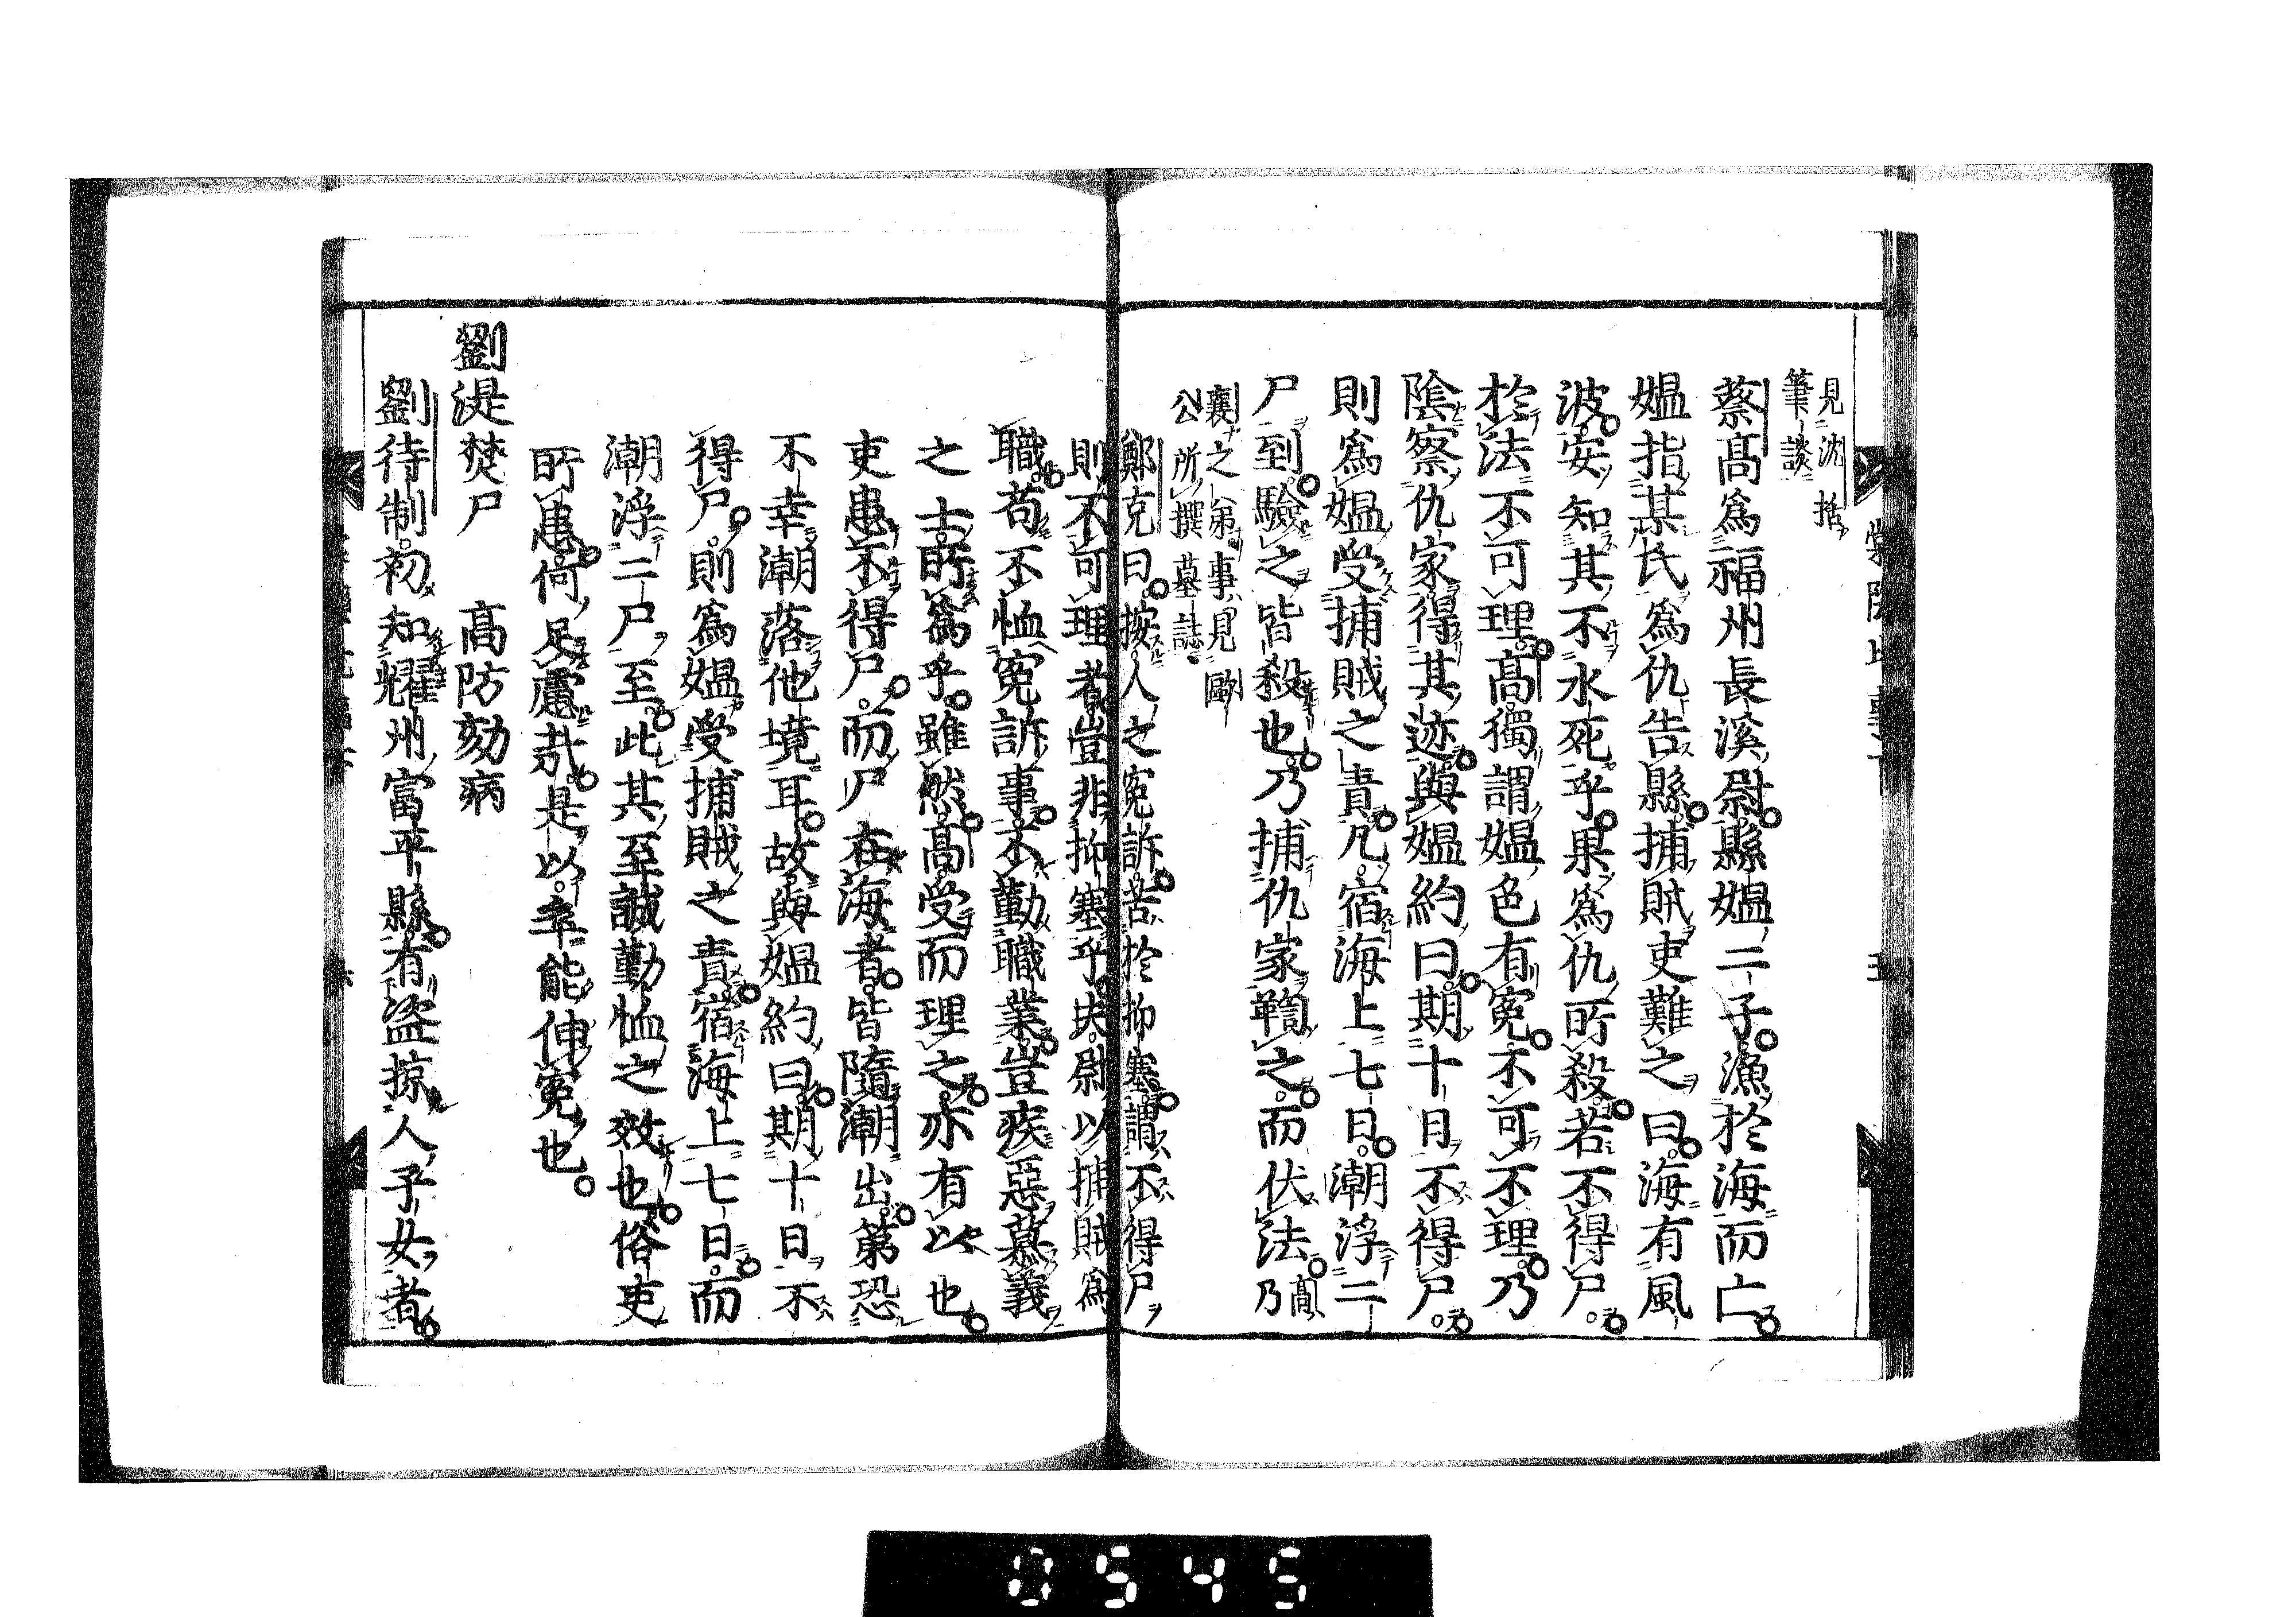 見沈括
筆談
蔡高爲福州長溪尉縣媼二子漁於海而亡
媼指某氏爲仇告縣捕賊吏難之曰海有風
波安知其不水死乎果爲仇所殺若不得尸
於法不可理高獨謂媼色有冤不可不理乃
陰察仇家得其迹與媼約曰期十日不得尸
則爲媼受捕賊之責凡宿海上七日潮浮二
尸到驗之皆殺也乃捕仇家鞫之而伏法高乃
襄之弟事見歐
公所撰墓誌
鄭克曰按人之冤訴苦於抑塞謂不得尸
則不可理者豈非抑塞乎夫尉以捕賊爲
職苟不恤冤訴事不勤職業豈疾惡慕義
之士所爲乎雖然高受而理之亦有以也
吏患不得尸而尸在海者皆隨潮出第恐
不幸潮落他境耳故與媼約曰期十日不
得尸則爲媼受捕賊之責宿海上七日而
潮浮二尸至此其至誠勤恤之效也俗吏
所患何足慮哉是以卒能伸冤也
劉湜焚尸　高防劾病
劉待制初知耀州富平縣有盜掠人子女者
0545